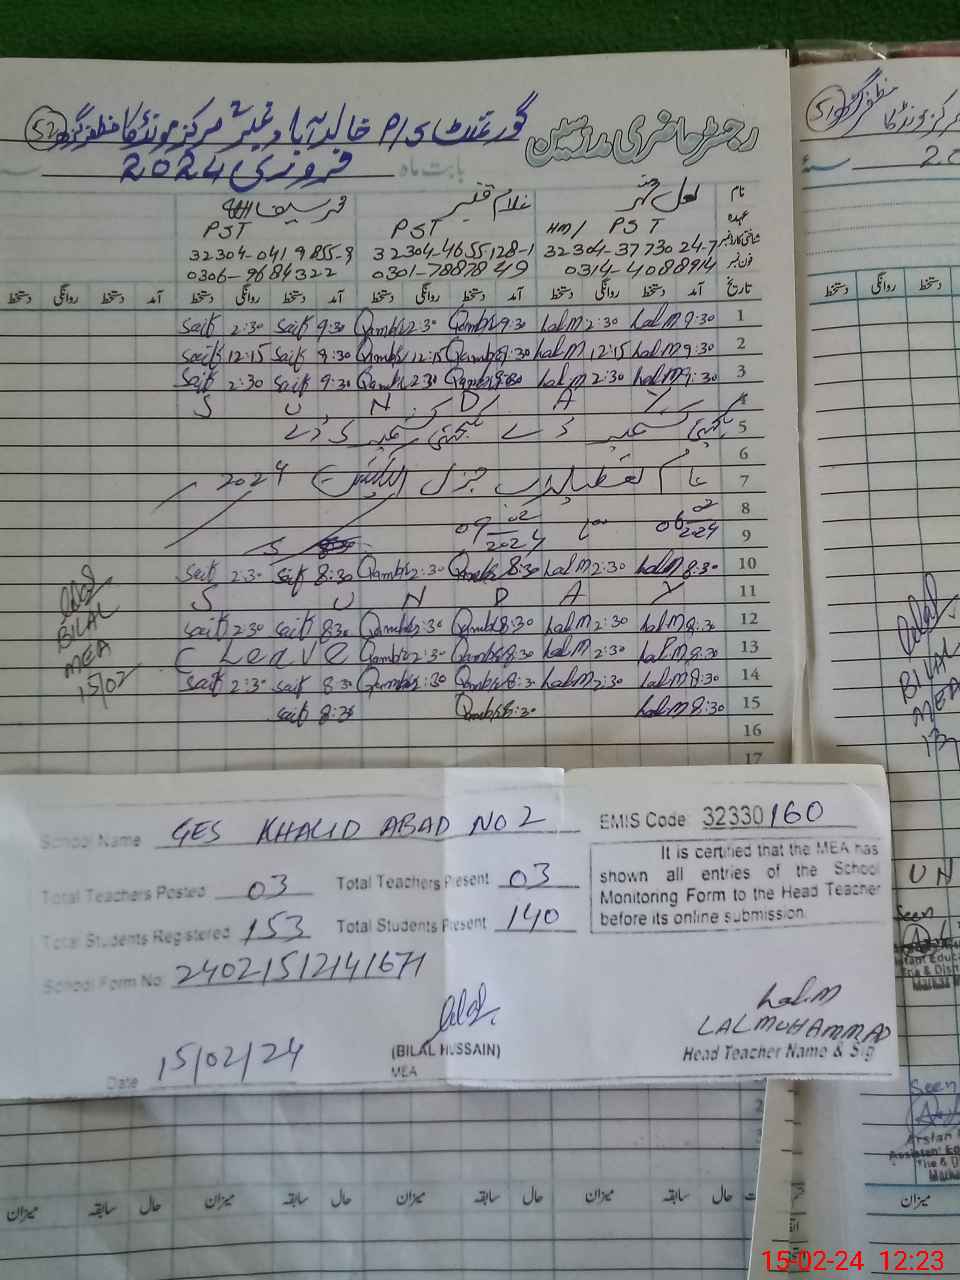 رجسٹر حاضری مدرسین گورنمنٹ P/S خالد آباد نمبر 2 مرکز مونڈکا مظفرگڑھ 52
بابت ماہ فروری 2024
نام لعل محمد غلام قنبر محمد سیف اللہ
عہدہ HM/ PST PST PST
شناختی کارڈ نمبر 32304-3773024-7 32304-4655128-1 32304-0419855-9
فون نمبر 0314-4088914 0301-7887849 0306-9684322
تاریخ آمد دستخط روانگی دستخط آمد دستخط روانگی دستخط آمد دستخط روانگی دستخط آمد دستخط روانگی دستخط
Saif 2:30 Saif 9:30 Qambir 2:30 Qambir 9:30 Lal M 2:30 Lal M 9:30 1
Saif 12:15 Saif 9:30 Qambir 12:15 Qambir 9:30 Lal M 12:15 Lal M 9:30 2
Saif 2:30 Saif 9:30 Qambir 2:30 Qambir 9:30 Lal M 2:30 Lal M 9:30 3
S U N D A Y 4
5 یکجہتی کشمیر ڈے یکجہتی کشمیر ڈے
6
7 عام تعطیلات جنرل الیکشن 2024
8 06-02-2024 تا 09-02-2024
9
Saif 2:30 Saif 8:30 Qambir 2:30 Qambir 8:30 Lal M 2:30 Lal M 8:30 10
S U N D A Y 11
Saif 2:30 Saif 8:30 Qambir 2:30 Qambir 8:30 Lal M 2:30 Lal M 8:30 12
C Leave Qambir 2:30 Qambir 8:30 Lal M 2:30 Lal M 8:30 13
Saif 2:30 Saif 8:30 Qambir 2:30 Qambir 8:30 Lal M 2:30 Lal M 8:30 14
Saif 8:30 Qambir 8:30 Lal M 8:30 15
16
17
BILAL
MEA
15/02
School Name GES KHALID ABAD NO 2
EMIS Code: 32330160
Total Teachers Posted 03 Total Teachers Present 03
Total Students Registered 153 Total Students Present 140
School Form No. 24021512141671
It is certified that the MEA has
shown all entries of the School
Monitoring Form to the Head Teacher
before its online submission.
Date 15/02/24
(BILAL HUSSAIN)
MEA
Lal M
LAL MUHAMMAD
Head Teacher Name & Sig
میزان سابقہ حال میزان سابقہ حال میزان سابقہ حال میزان سابقہ حال
51
دستخط روانگی دستخط
BILAL
MEA
U N
Seen
Seen
Arslan
میزان
15-02-24 12:23